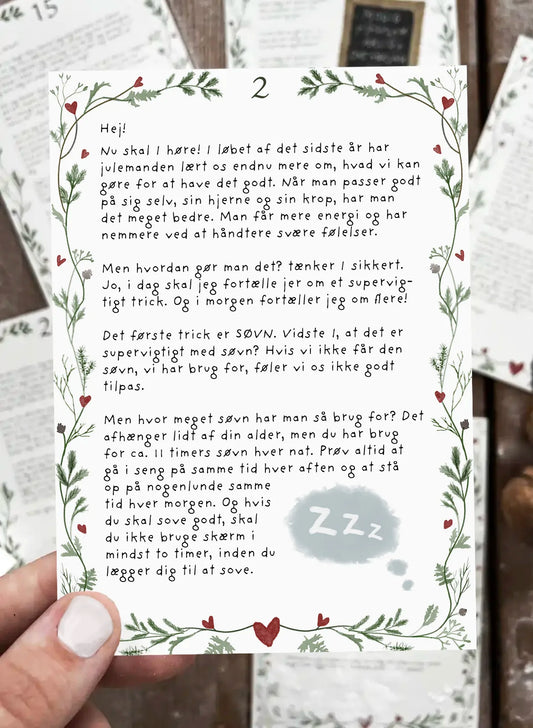 15
2
Hej!
Nu skal I høre! I løbet af det sidste år har
julemanden lært os endnu mere om, hvad vi kan
gøre for at have det godt. Når man passer godt
på sig selv, sin hjerne og sin krop, har man
det meget bedre. Man får mere energi og har
nemmere ved at håndtere svære følelser.
Men hvordan gør man det? tænker I sikkert.
Jo, i dag skal jeg fortælle jer om et supervig-
tigt trick. Og i morgen fortæller jeg om flere!
Det første trick er SØVN. Vidste I, at det er
supervigtigt med søvn? Hvis vi ikke får den
søvn, vi har brug for, føler vi os ikke godt
tilpas.
Men hvor meget søvn har man så brug for? Det
afhænger lidt af din alder, men du har brug
for ca. 11 timers søvn hver nat. Prøv altid at
gå i seng på samme tid hver aften og at stå
op på nogenlunde samme
tid hver morgen. Og hvis
du skal sove godt, skal
du ikke bruge skærm i
mindst to timer, inden du
lægger dig til at sove.
ZZZ